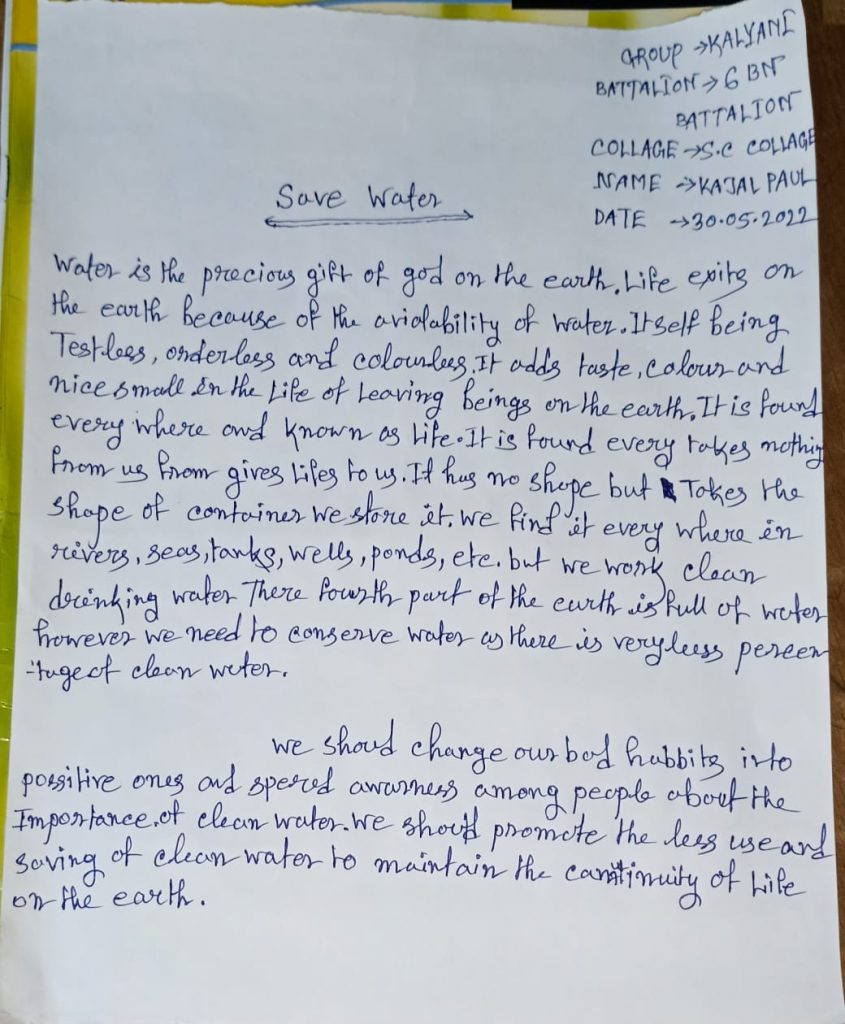 GROUP → KALYANI
BATTALION → 6 BN
BATTALION
COLLAGE → S.C COLLAGE
NAME → KAJAL PAUL
DATE → 30.05.2022
Save Water
Water is the precious gift of god on the earth. Life exits on
the earth because of the aviolability of water. Itself being
Testless, orderless and colourless. It adds taste, colour and
nice small in the Life of Leaving beings on the earth. It is found
every where and known as life. It is found every takes nothing
from us from gives lifes to us. It has no shape but Takes the
shape of container we store it. we find it every where in
rivers, seas, tanks, wells, ponds, etc. but we work clean
drinking water There fourth part of the earth is full of water
however we need to conserve water as there is very leess perecen
-tage of clean water.
we shoud change our bad habbits into
possitive ones and spered awarness among people about the
Importance of clean water. We should promote the less use and
saving of clean water to maintain the cantinuity of Life
on the earth.